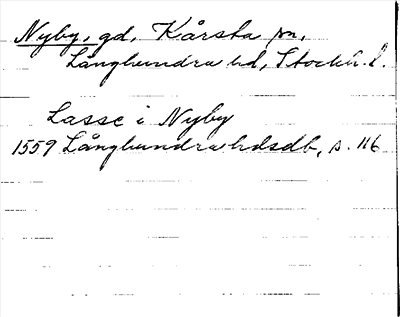 Nyby, gd, Kårsta sn,
Långhundra hd, Stockh. l.
Lasse i Nyby
1559 Långhundra hdsdb, s. 116